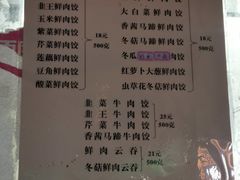 韭王鲜肉饺
玉米鲜肉饺
紫菜鲜肉饺
芹菜鲜肉饺
莲藕鲜肉饺
豆角鲜肉饺
酸菜鲜肉饺
18元
500克
大白菜鲜肉饺
香茜马蹄鲜肉饺
冬菇马蹄鲜肉饺
冬瓜
肉饺
红萝卜大葱鲜肉饺
虫草花冬菇鲜肉饺
18元
500克
韭菜牛肉饺
韭王牛肉饺
芹菜牛肉饺
香茜马蹄牛肉饺
25元
500克
鲜肉云吞
冬菇鲜肉云吞
21元
500克